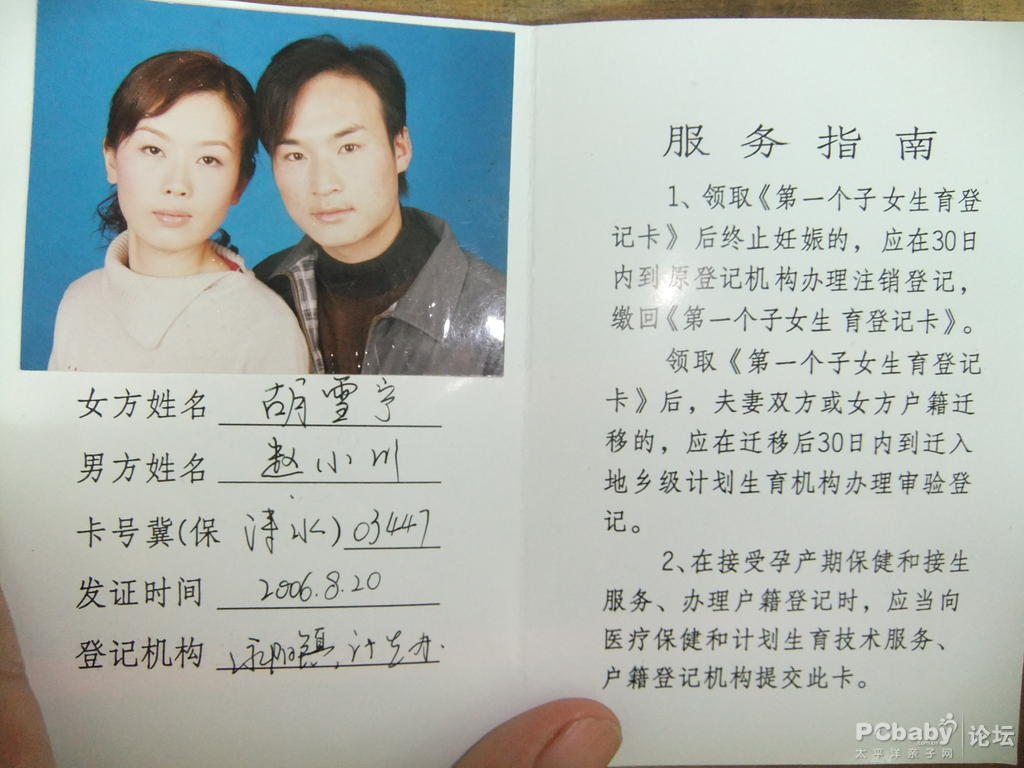 女方姓名 胡雪宁
男方姓名 赵小川
卡号冀(保 涞水) 03447
发证时间 2006.8.20
登记机构 镇计生办
服务指南
1、领取《第一个子女生育登
记卡》后终止妊娠的，应在30日
内到原登记机构办理注销登记，
缴回《第一个子女生育登记卡》。
领取《第一个子女生育登记
卡》后，夫妻双方或女方户籍迁
移的，应在迁移后30日内到迁入
地乡级计划生育机构办理审验登
记。
2、在接受孕产期保健和接生
服务、办理户籍登记时，应当向
医疗保健和计划生育技术服务、
户籍登记机构提交此卡。
PCbaby 论坛
.com.cn
太平洋亲子网